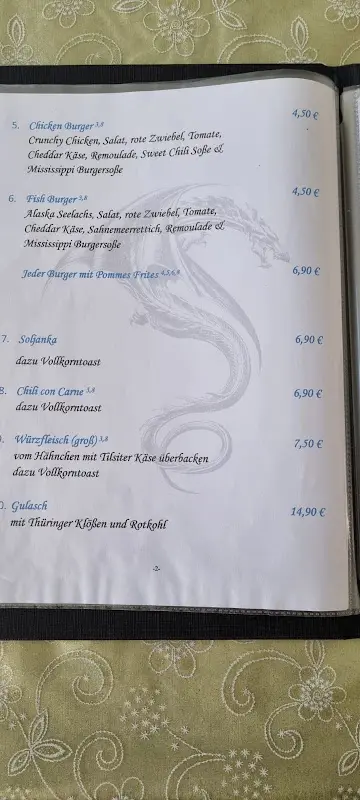 5. Chicken Burger 3,8 4,50 €
Crunchy Chicken, Salat, rote Zwiebel, Tomate,
Cheddar Käse, Remoulade, Sweet Chili Soße &
Mississippi Burgersoße
6. Fish Burger 3,8 4,50 €
Alaska Seelachs, Salat, rote Zwiebel, Tomate,
Cheddar Käse, Sahnemeerrettich, Remoulade &
Mississippi Burgersoße
Jeder Burger mit Pommes Frites 4,5,6,8 6,90 €
7. Soljanka 6,90 €
dazu Vollkorntoast
8. Chili con Carne 3,8 6,90 €
dazu Vollkorntoast
Würzfleisch (groß) 3,8 7,50 €
vom Hähnchen mit Tilsiter Käse überbacken
dazu Vollkorntoast
Gulasch 14,90 €
mit Thüringer Klößen und Rotkohl
-2-